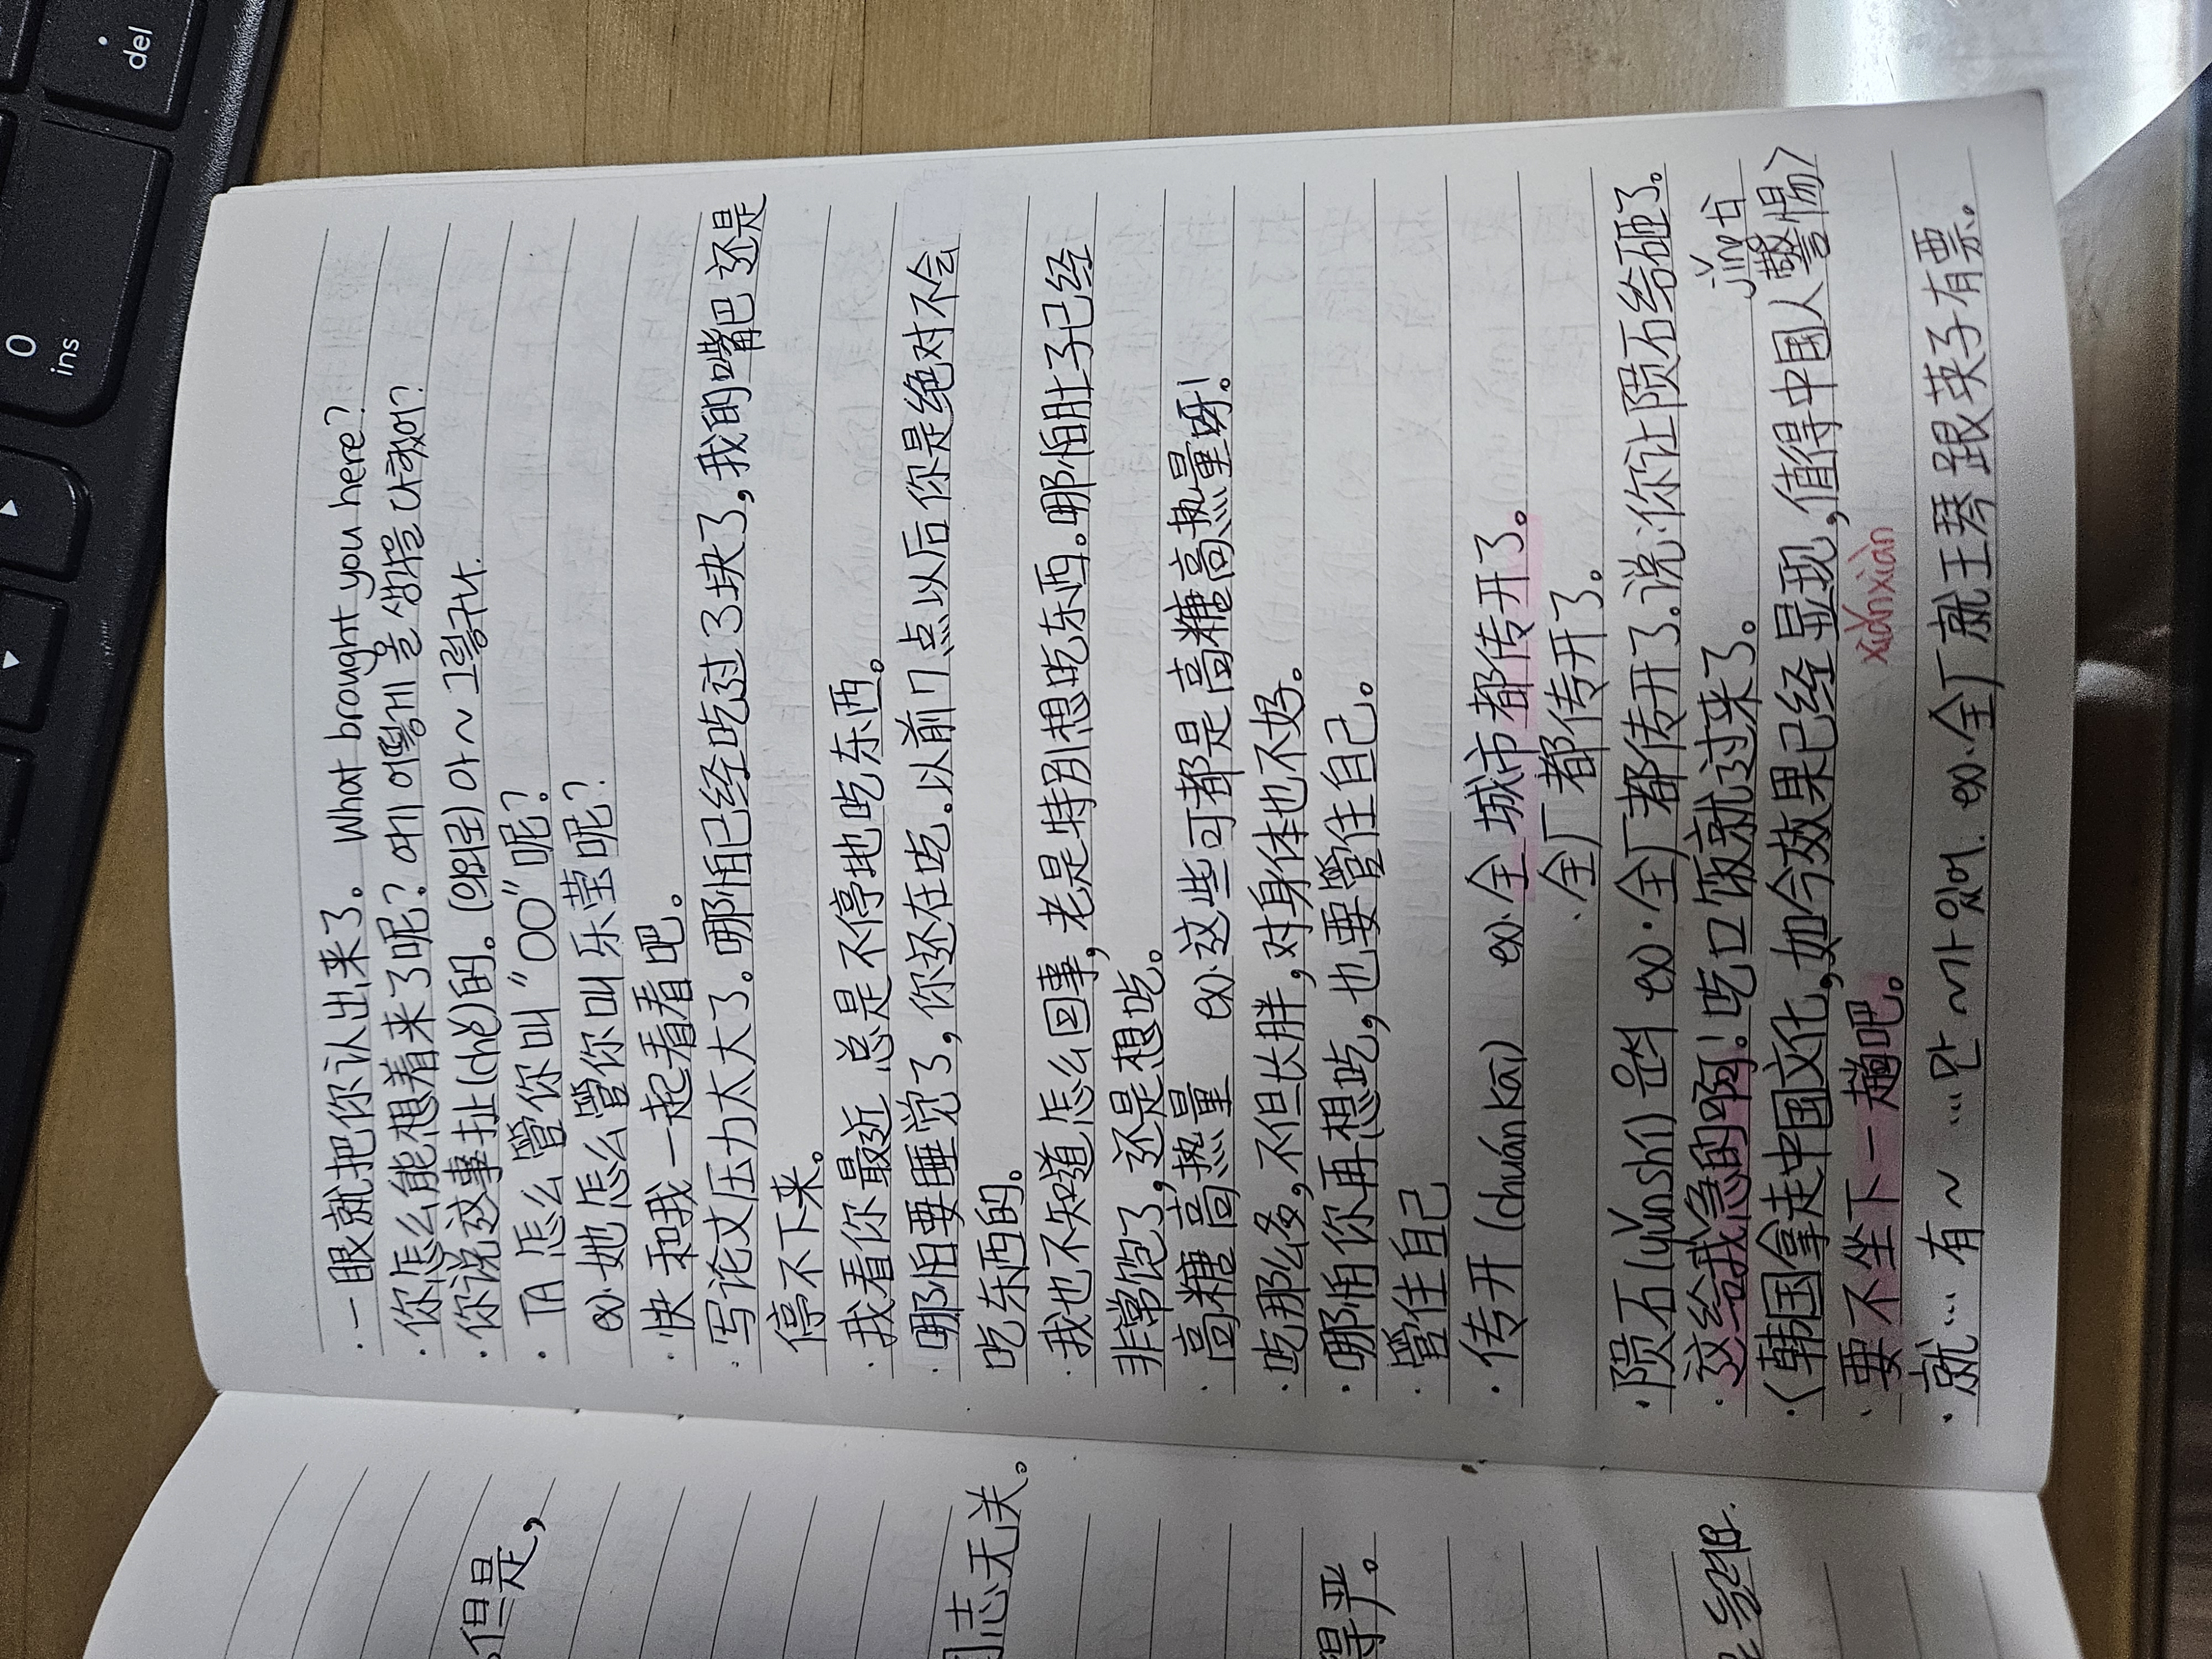 · 一眼就把你认出来了。 What brought you here?
· 你怎么能想着来了呢? 여기 어떻게 올 생각을 다 했어?
· 你说这事扯(chě)的。(의외로) 아~ 그렇구나.
· TA 怎么管你叫 "OO" 呢?
ex)·她怎么管你叫乐莹呢?
· 快和我一起看看吧。
· 写论文压力太大了。哪怕已经吃过了3块了,我的嘴巴还是
停不下来。
· 我看你最近 总是不停地吃东西。
· 哪怕要睡觉了,你还在吃.以前7点以后你是绝对不会
吃东西的。
· 我也不知道怎么回事,老是特别想吃东西。哪怕肚子已经
非常饱了,还是想吃。
· 高糖高热量 ex)·这些可都是高糖高热量呀!。
· 吃那么多,不但长胖,对身体也不好。
· 哪怕你再想吃,也要管住自己。
· 管住自己
· 传开 (chuánkāi) ex)·全城市都传开了。
·全厂都传开了。
· 陨石(yǔnshí) 운석 ex)·全厂都传开了.说你让陨石给砸了。
· 这给我急的啊!吃口饭就过来了。
jǐng tì
· 〈韩国拿走中国文化,如今效果已经显现,值得中国人警惕〉
xiǎnxiàn
· 要不坐下一趟吧。
· 就... 有~ ...만 ~가 있어. ex)·全厂就王琴跟英子有票。
但是,
志无关。
得严。
del
0
ins